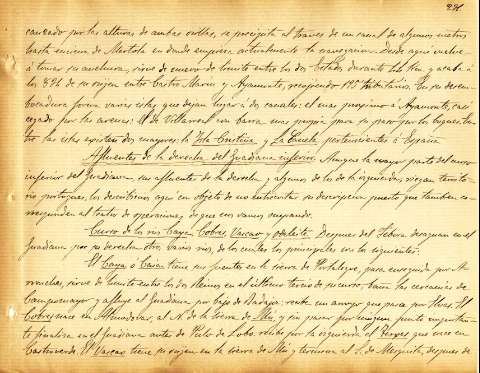 281
cauzado por las alturas de ambas orillas, se precipita al traves de un canal de algunos metros
hasta encima de Mertola en donde empieza actualmente la navegacion. Desde aqui vuelve
á tomar su anchura, sirve de nuevo de limite entre los dos Estados durante Km y acaba á
los 894 de su origen entre Castro Marin y Ayamonte, recogiendo 190 tributarios. En su desem-
bocadura forma varias islas que dejan lugar á dos canales: el mas proximo á Ayamonte, casi
cegado por las arenas: El de Villarreal con barra mas propia para su paso por los buques. En-
tre las islas existen dos mayores: la Isla Cristina y La Canela, pertenecientes á España
Afluentes de la derecha del Guadiana inferior. Aunque la mayor parte del curso
inferior del Guadiana, sus afluentes de la derecha y algunos de los de la izquierda, riegan territo-
rio portugues, los describimos aqui con objeto de no interrumpir su descripcion puesto que tambien co-
rresponden al teatro de operaciones, de que nos vamos ocupando.
Curso de los rios Caya, Cobres, Vascao y Odeleite. Despues del Gebora desaguan en el
Guadiana por su derecha otros varios rios, de los cuales los principales son los siguientes.
El Caya ó Caia tiene sus fuentes en la sierra de Portalegre, pasa enseguida por A-
rronches, sirve de limite entre los dos Reinos en el ultimo tercio de su curso, baña las cercanias de
Campomayor y afluye al Guadiana por bajo de Badajoz: recibe un arroyo que pasa por Elvas. El
Cobres nace en Almodovar, al N. de la Sierra de y sin pasar por ningun punto importan-
te finaliza en el Guadiana antes de Pulo de Lobo; recibe por la izquierda el Terges que nace en
Castroverde. El Vascao tiene su origen en la sierra de y termina al S. de Mezquita, despues de